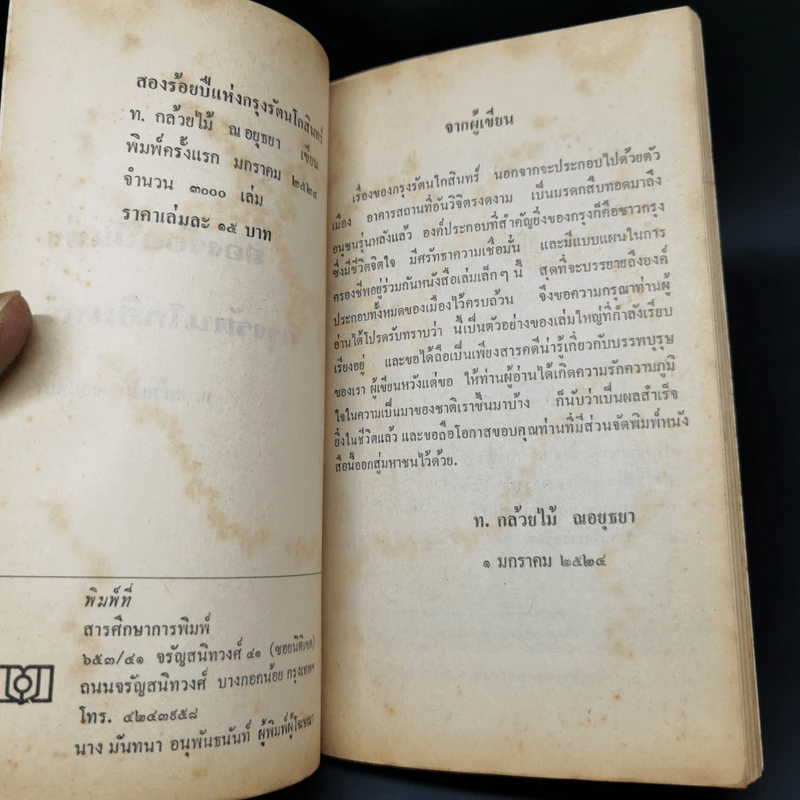 สองร้อยปีแห่งกรุงรัตนโกสินทร์
ท. กล้วยไม้ ณ อยุธยา เขียน
พิมพ์ครั้งแรก มกราคม ๒๕๒๔
จำนวน ๓๐๐๐ เล่ม
ราคาเล่มละ ๑๕ บาท
พิมพ์ที่
สารศึกษาการพิมพ์
๖๕๓/๔๑ จรัญสนิทวงศ์ ๔๑ (ซอยนิติเขต)
ถนนจรัญสนิทวงศ์ บางกอกน้อย กรุงเทพฯ
โทร. ๔๒๔๓๙๕๘
นาง มันทนา อนุพันธนันท์ ผู้พิมพ์ผู้โฆษณา
จากผู้เขียน
เรื่องของกรุงรัตนโกสินทร์ นอกจากจะประกอบไปด้วยตัว
เมือง อาคารสถานที่อันวิจิตรงดงาม เป็นมรดกสืบทอดมาถึง
อนุชนรุ่นหลังแล้ว องค์ประกอบที่สำคัญยิ่งของกรุงก็คือชาวกรุง
ซึ่งมีชีวิตจิตใจ มีศรัทธาความเชื่อมั่น และมีแบบแผนในการ
ครองชีพอยู่ร่วมกันหนังสือเล่มเล็กๆ นี้ สุดที่จะบรรยายถึงองค์
ประกอบทั้งหมดของเมืองไว้ครบถ้วน จึงขอความกรุณาท่านผู้
อ่านได้โปรดรับทราบว่า นี้เป็นตัวอย่างของเล่มใหญ่ที่กำลังเรียบ
เรียงอยู่ และขอได้ถือเป็นเพียงสารคดีน่ารู้เกี่ยวกับบรรพบุรุษ
ของเรา ผู้เขียนหวังแต่ขอ ให้ท่านผู้อ่านได้เกิดความรักความภูมิ
ใจในความเป็นมาของชาติเราขึ้นมาบ้าง ก็นับว่าเป็นผลสำเร็จ
ยิ่งในชีวิตแล้ว และขอถือโอกาสขอบคุณท่านที่มีส่วนจัดพิมพ์หนัง
สือนี้ออกสู่มหาชนไว้ด้วย.
ท. กล้วยไม้ ณอยุธยา
๑ มกราคม ๒๕๒๔